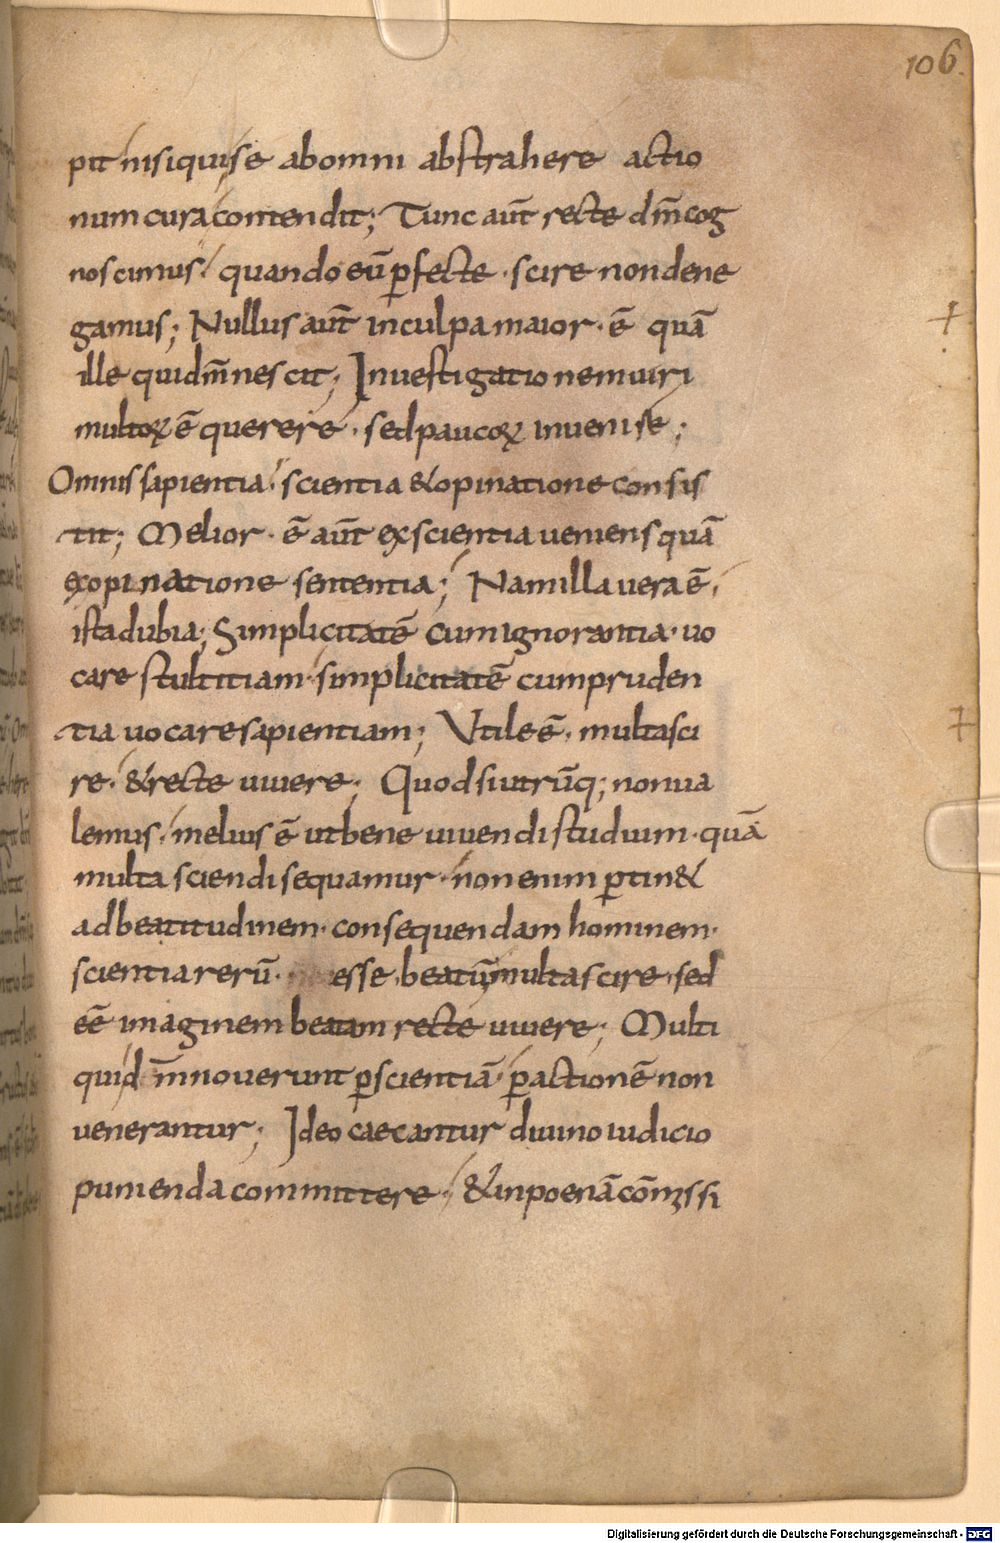 106.
pit nisi qui se ab omni abstrahere actio
num cura contendit; Tunc aut̄ recte dm̄ cog
noscimus. quando eū ꝑfecte. scire non dene
gamus; Nullus aut̄ in culpa maior. ē quā
ille qui dm̄ nescit; Inuestigationem uiri
multoꝝ ē querere. sed paucoꝝ inuenise;
Omnis sapientia. scientia & opinatione consis
tit; Melior. ē aut̄ ex scientia ueniens quā
ex opinatione sententia; Nam illa uera ē.
ista dubia; Simplicitatē cum ignorantia. uo
care stultitiam. simplicitatē cum pruden
tia uocare sapientiam; Vtile ē. multa sci
re. & recte uiuere; Quod si utrūq; non ua
lemus. melius ē ut bene uiuendi studium. quā
multa sciendi sequamur. non enim ꝑtin&
ad beatitudinem. consequendam hominem.
scientia rerū. esse beatū multa scire. sed
eē imaginem beatam recte uiuere; Multi
quid m̄ nouerunt ꝑ scientiā. ꝑ actionē non
uenerantur; Ideo caecantur diuino iudicio
punienda committere. & in poenā
Digitalisierung gefördert durch die Deutsche Forschungsgemeinschaft - DFG